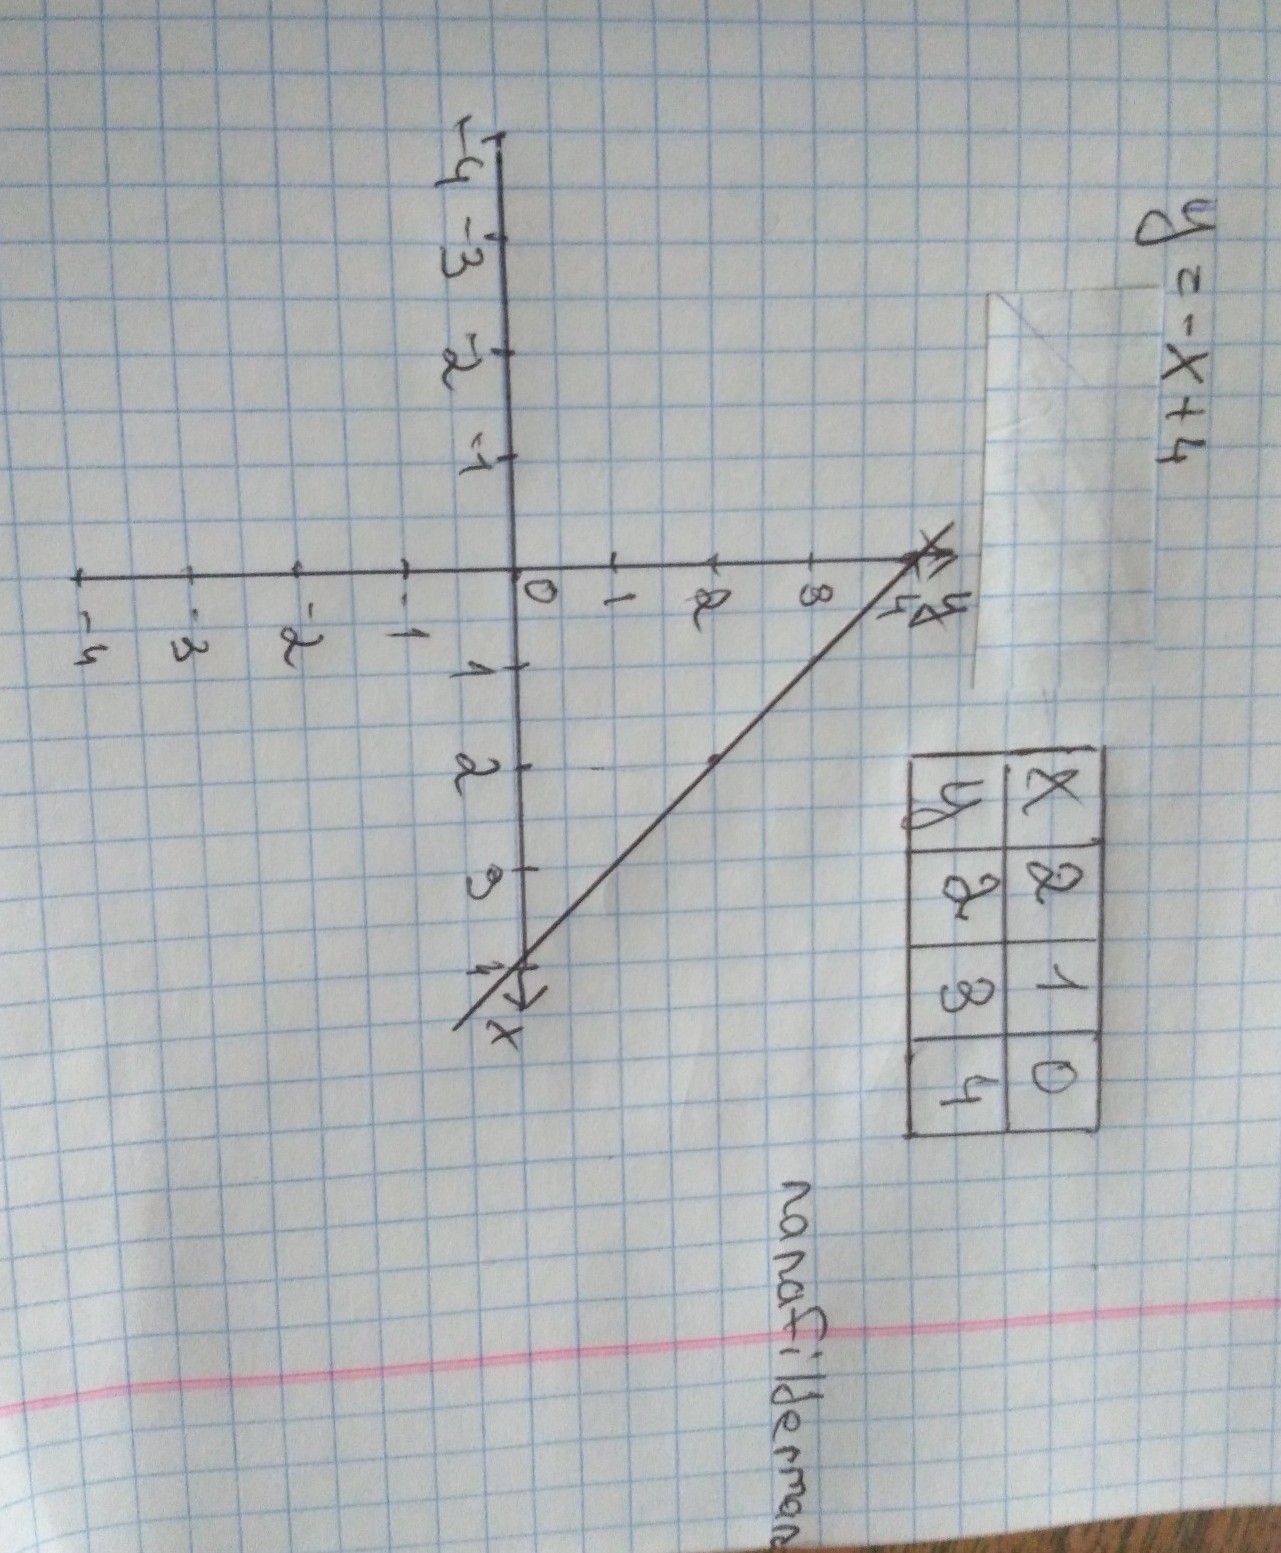 y = -x+4
x 2 1 0
y 2 3 4
y
4
3
2
1
-4 -3 -2 -1 0 1 2 3 4 x
-1
-2
-3
-4
nanafilderman